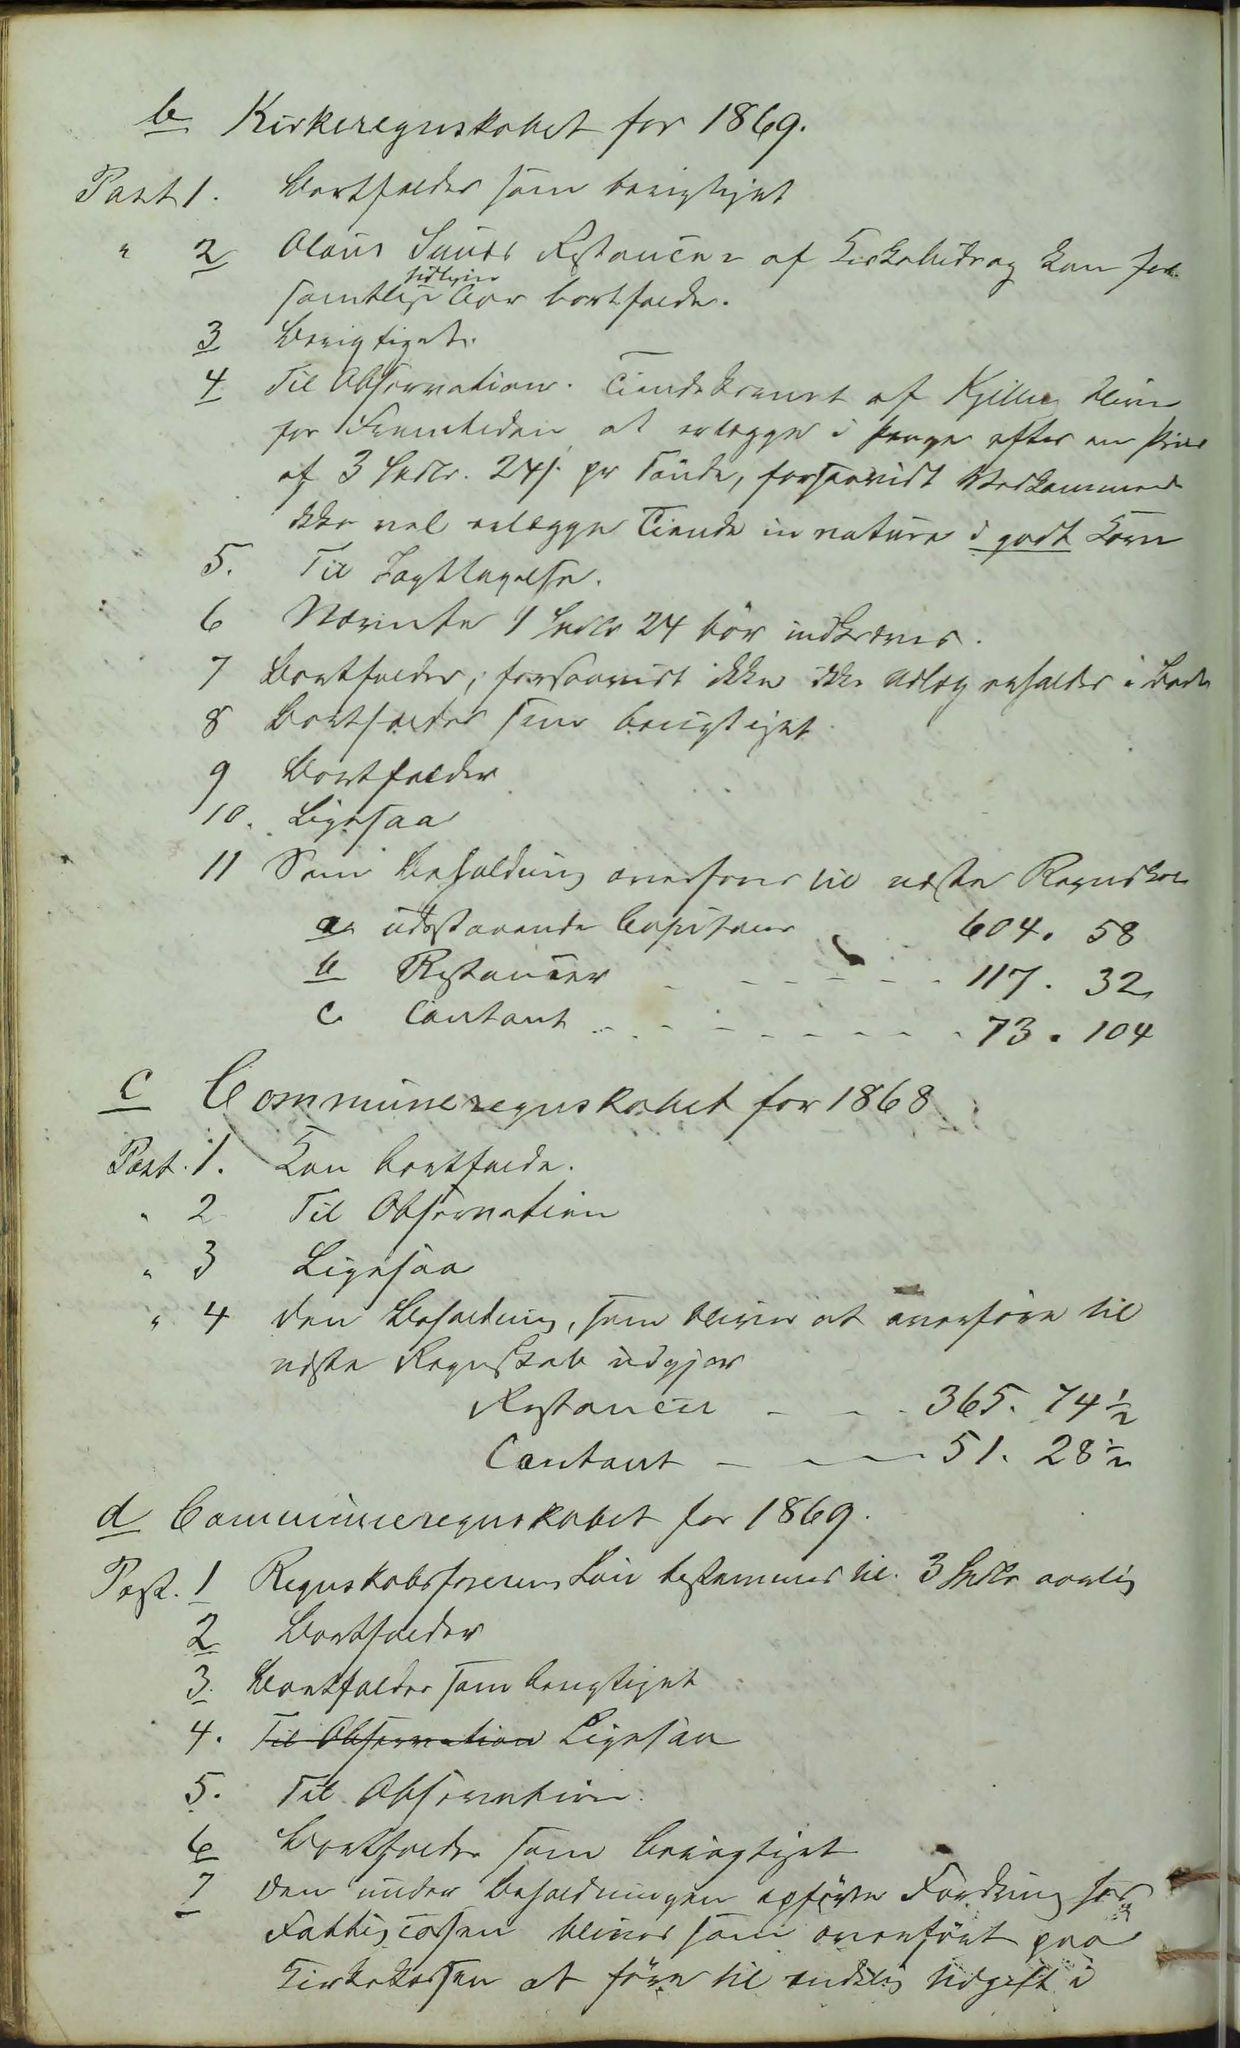 b Kirkeregnskabet for 1869.
Post 1. Bortfalder som berigtiget
" 2 Olaus Restancer af Kirkebidrag kan for
samtlige tidligere Aar bortfalde.
3 Berigtiget.
4 Til Observation. Tiendekornet af bliver
for Fremtiden at erlægge i Penge efter en Priis
af 3 Spdlr. 24 s. pr Tønde, forsaavidt Vedkommende
ikke vil erlægge Tiende in natura i godt Korn
5. Til Iagttagelse.
6 Nævnte 1 Spdlr 24 bør indkræves.
7 Bortfalder, forsaavidt ikke ikke Udlæg erholdes i
8 Bortfalder som berigtiget
9 Bortfalder
10. Ligesaa
11 Som Beholdning overføres til næste Regnskab
a udestaaende Capitaler 604. 58
b Restancer - - - - - - 117. 32
c Contant - - - - - - - 73. 104
c Communeregnskabet for 1868
Post. 1. Kan bortfalde.
" 2 Til Observation
" 3 Ligesaa
" 4 Den Beholdning, som bliver at overføre til
næste Regnskab udgjør
Restancer - - - 365. 74 1/2
Contant - - - 51. 28 1/2
d Communeregnskabet for 1869.
Post. 1 Regnskabsførerens Løn bestemmes til 3 Spdlr aarlig
2 Bortfalder
3. Bortfalder som berigtiget
4. Til Observation Ligesaa
5. Til Observation.
6 Bortfalder som berigtiget
7 Den under Beholdningen opførte Fordring hos
Fattigcassen bliver som overført paa
Kirkekassen at føre til endelig Udgift i